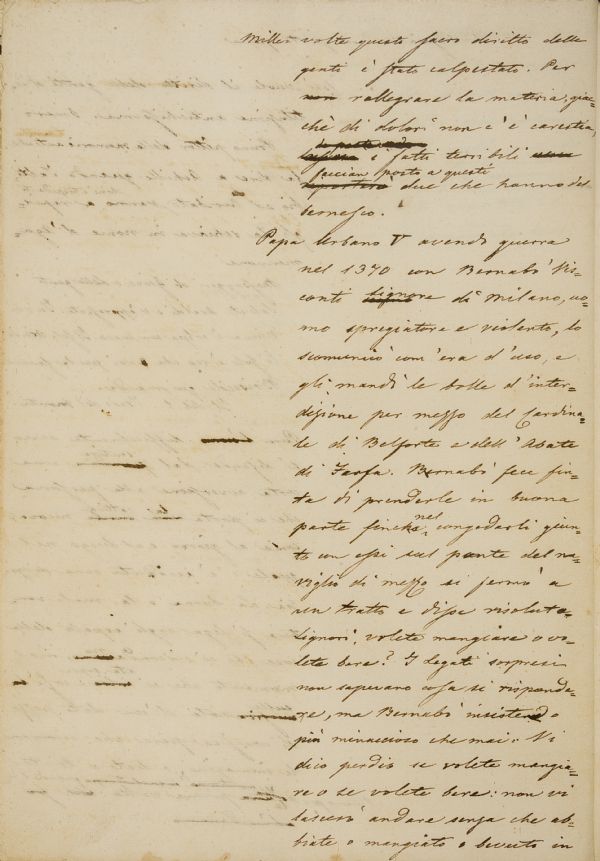 Mille volte questo sacro diritto delle
genti è stato calpestato. Per
non rallegrare la materia, giac=
chè di dolori non c'è carestia,
e fatti terribili
facciam posto a questi
due che hanno del
bernesco.
Papa Urbano V avendo guerra
nel 1370 con Bernabò Vis=
conti signore di Milano, uo=
mo spregiatore e violento, lo
scomunicò com'era d'uso, e
gli mandò le bolle d'inter=
dizione per mezzo del Cardina=
le di Belforte e dell'Abate
di Farfa. Bernabò fece fin=
ta di prenderle in buona
parte finchè nel congedarli giun=
to con essi sul ponte del na=
viglio di mezzo si fermò a
un tratto e disse risoluto=
Signori, volete mangiare o vo=
lete bere? I legati sorpresi
non sapevano cosa si risponde=
re, ma Bernabò insistendo
più minaccioso che mai: Vi
dico perdio se volete mangia=
re o se volete bere: non vi
lascerò andare senza che ab=
biate o mangiato o bevuto in